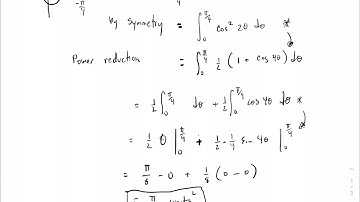 -π/4 4
By Symmetry = ∫₀^{π/4} cos² 2θ dθ *
Power reduction = ∫₀^{π/4} 1/2 (1 + cos 4θ) dθ
= 1/2 ∫₀^{π/4} dθ + 1/2 ∫₀^{π/4} cos 4θ dθ *
= 1/2 θ |₀^{π/4} + 1/2 · 1/4 sin 4θ |₀^{π/4}
= π/8 - 0 + 1/8 (0 - 0)
= π units²